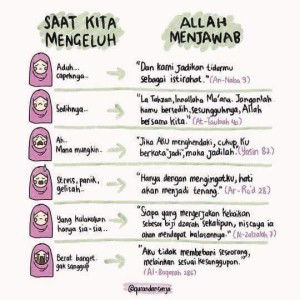 SAAT KITA
MENGELUH
ALLAH
MENJAWAB
Aduh..
capeknya..
"Dan kami jadikan tidurmu
sebagai istirahat." (An-Naba 9)
Sedihnya..
"La Tahzan, Innalloha Ma'ana. Janganlah
kamu bersedih, sesungguhnya, Allah
bersama kita." (At-Taubah 40)
Ah..
Mana mungkin..
"Jika AKU menghendaki, cukup Ku
berkata "jadi", maka jadilah." (Yasin 82)
Stress, panik,
gelisah..
"Hanya dengan mengingatku, hati
akan menjadi tenang." (Ar-Ra'd 28)
Yang kulakukan
hanya sia-sia..
"Siapa yang mengerjakan kebaikan
sebesar biji dzarrah sekalipun, niscaya ia
akan mendapat balasannya." (Al-Zalzalah 7)
Berat banget..
gak sanggup
"Aku tidak membebani seseorang,
melainkan sesuai kesanggupan."
(Al-Baqarah 286)
@qurandansunnah